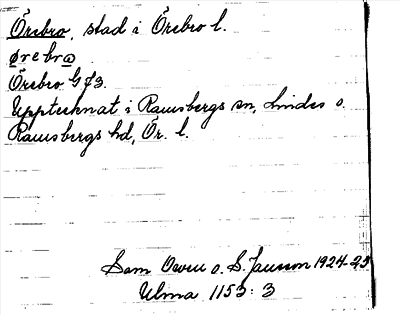 Örebro, stad i Örebro l.
ørebro
Örebro G ⨍3.
Upptecknat i Ramsbergs sn, Lindes o.
Ramsbergs hd, Ör. l.
Sam Owen o. S. Jansson 1924-25
Ulma 1153: 3